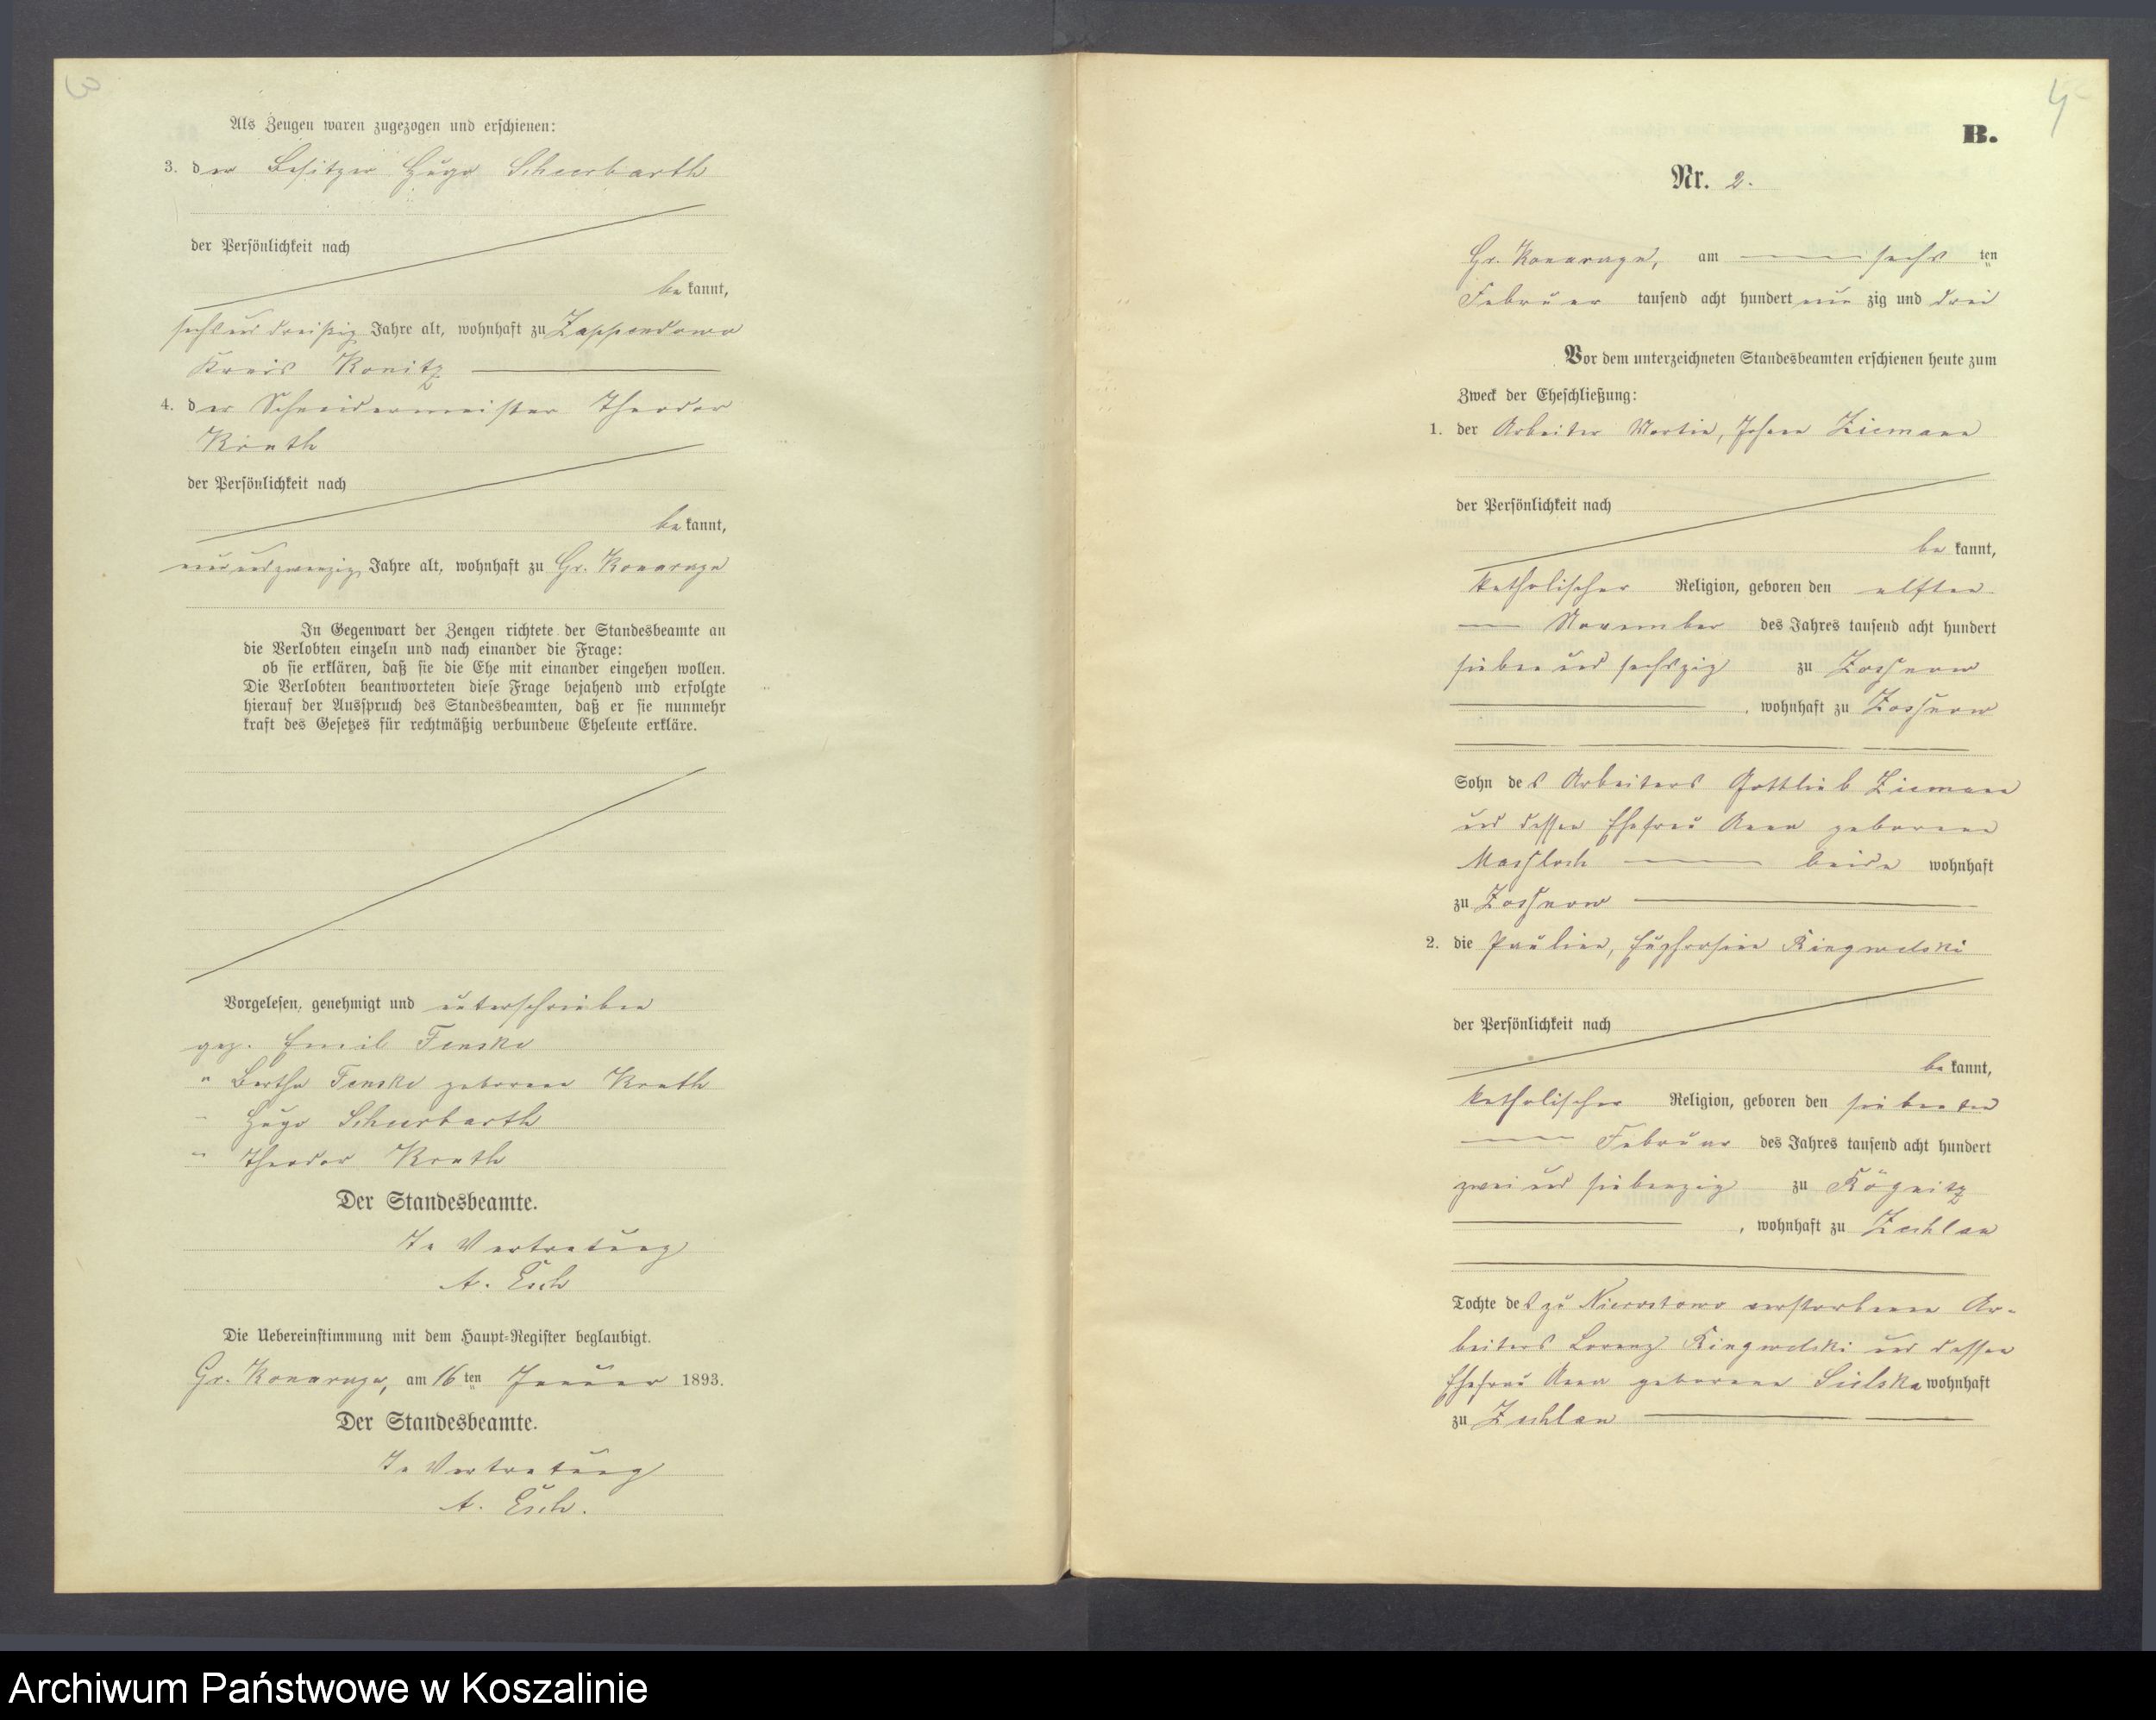 3
Als Zeugen waren zugezogen und erschienen:
3. der Besitzer Hugo Scheerbarth
der Persönlichkeit nach
be kannt,
sechsunddreißig Jahre alt, wohnhaft zu Zappendowo
Kreis Konitz
4. der Schneidermeister Theodor
Knuth
der Persönlichkeit nach
be kannt,
neunundzwanzig Jahre alt, wohnhaft zu Gr. Konarzyn
In Gegenwart der Zeugen richtete der Standesbeamte an
die Verlobten einzeln und nach einander die Frage:
ob sie erklären, daß sie die Ehe mit einander eingehen wollen.
Die Verlobten beantworteten diese Frage bejahend und erfolgte
hierauf der Ausspruch des Standesbeamten, daß er sie nunmehr
kraft des Gesetzes für rechtmäßig verbundene Eheleute erkläre.
Vorgelesen, genehmigt und unterschrieben
gez. Emil Fenske
" Bertha Fenske geborene Knuth
" Hugo Scheerbarth
" Theodor Knuth
Der Standesbeamte.
In Vertretung
A. Esch
Die Uebereinstimmung mit dem Haupt-Register beglaubigt.
Gr. Konarzyn, am 16 ten Januar 1893.
Der Standesbeamte.
In Vertretung
A. Esch.
4
B.
Nr. 2.
Gr. Konarzyn, am sechs ten
Februar tausend acht hundert neun zig und drei
Vor dem unterzeichneten Standesbeamten erschienen heute zum
Zweck der Eheschließung:
1. der Arbeiter Martin, Johann Ziemann
der Persönlichkeit nach
be kannt,
katholischer Religion, geboren den elften
November des Jahres tausend acht hundert
sieben und sechszig zu Zossnow
, wohnhaft zu Zossnow
Sohn des Arbeiters Gottlieb Ziemann
und dessen Ehefrau Anna geborene
beide wohnhaft
zu Zossnow
2. die Pauline, Euphrosine Ringwelski
der Persönlichkeit nach
be kannt,
katholischer Religion, geboren den siebenten
Februar des Jahres tausend acht hundert
zwei und siebenzig zu
, wohnhaft zu Zechlau
Tochter des zu verstorbenen Ar-
beiters Lorenz Ringwelski und dessen
Ehefrau Anna geborene Sielska wohnhaft
zu Zechlau
Archiwum Państwowe w Koszalinie